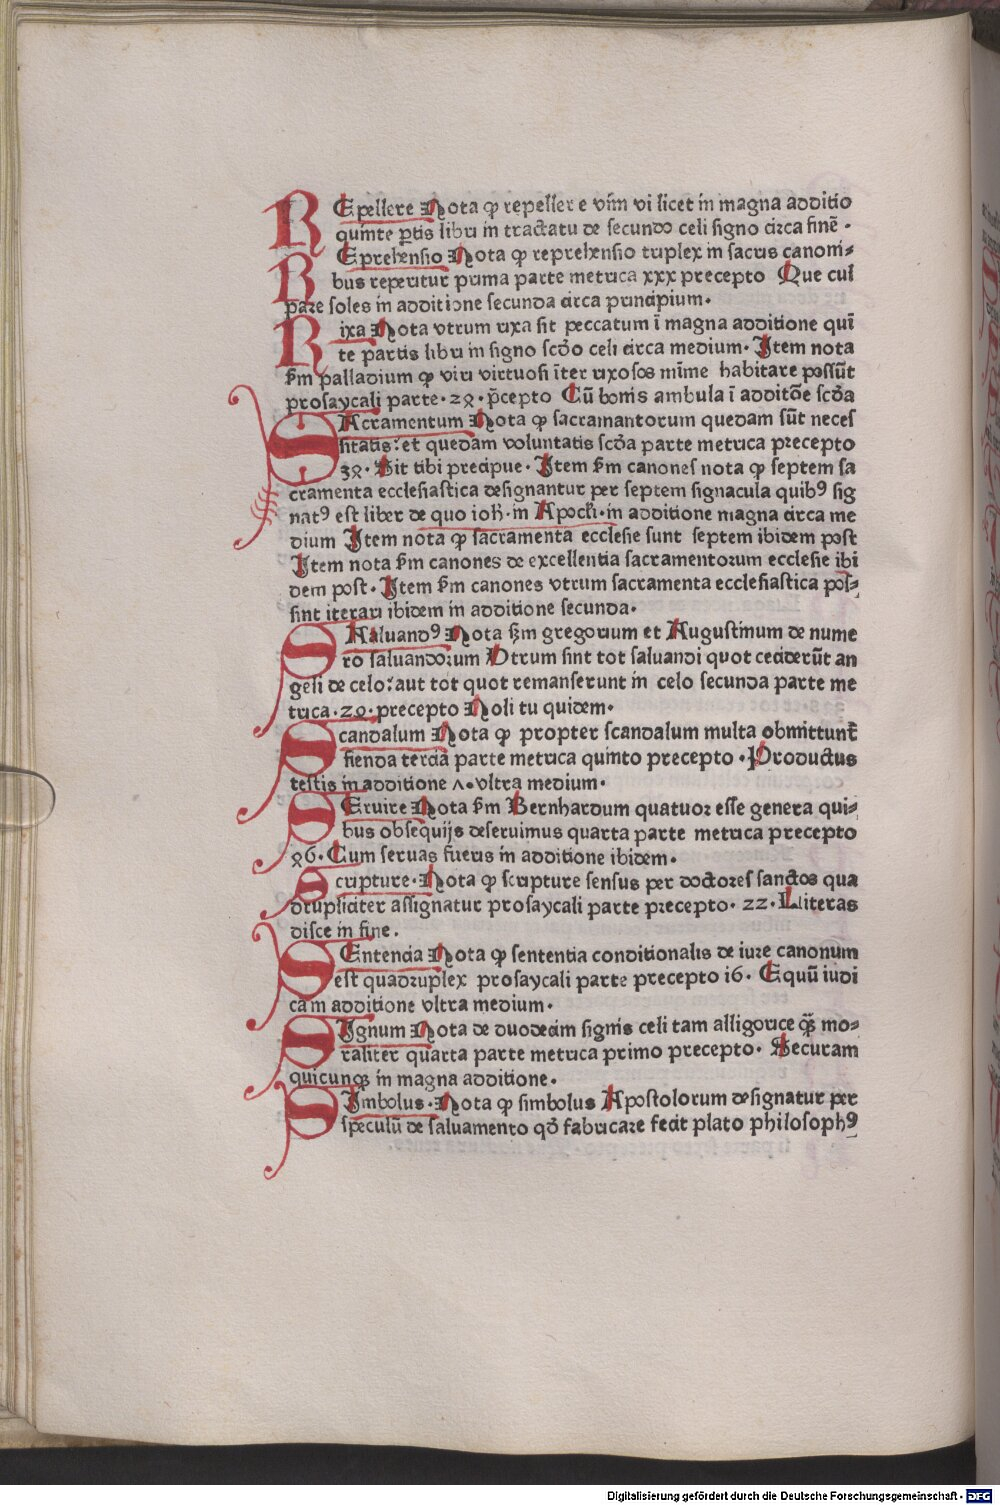 REpellere Nota ꝙ repellere vim vi licet in magna additio
quinte ꝑtis libri in tractatu de secundo celi signo circa finē ·
REprehensio Nota ꝙ reprehensio triplex in sacris canoni-
bus reperitur prima parte metrica xxx precepto Que cul
pare soles in additione secunda circa principium·
Rixa Nota vtrum rixa sit peccatum ī magna additione quī
te partis libri in signo scd̄o celi circa medium· Item nota
ẜm palladium ꝙ viri virtuosi īter rixosos mīme habitare possūt
prosaycali parte· 28· p̄cepto Cū bonis ambula ī additōe scd̄a
SAcramentum Nota ꝙ sacramantorum quedam sūt neces
sitatis: et quedam voluntatis scd̄a parte metrica precepto
38· Sit tibi precipue· Item ẜm canones nota ꝙ septem sa
cramenta ecclesiastica designantur per septem signacula quibꝰ sig
natꝰ est liber de quo ioh̄·in Apocł·in additione magna circa me
dium Item nota ꝙ sacramenta ecclesie sunt septem ibidem post
Item nota ẜm canones de excellentia sacramentorum ecclesie ibi
dem post· Item ẜm canones vtrum sacramenta ecclesiastica pos-
sint iterari ibidem in additione secunda·
SAluandꝰ Nota ẜm gregorium et Augustinum de nume
ro saluandorum Vtrum sint tot saluandi quot ceciderūt an
geli de celo: aut tot quot remanserunt in celo secunda parte me
trica· 28· precepto Noli tu quidem·
Scandalum Nota ꝙ propter scandalum multa obmittunt᷑
fienda tercia parte metrica quinto precepto · Productus
testis in additione ʌ· vltra medium·
SEruire Nota ẜm Bernhardum quatuor esse genera qui-
bus obsequijs deseruimus quarta parte metrica precepto
86· Cum seruas fueris in additione ibidem·
Scripture· Nota ꝙ scripture sensus per doctores sanctos qua
drupliciter assignatur prosaycali parte precepto· 22· Literas
disce in fine.
SEntencia Nota ꝙ sententia conditionalis de iure canonum
est quadruplex prosaycali parte precepto i6· Equū iudi
cam additione vltra medium·
SIgnum Nota de duodecim signis celi tam alligorice qꝫ̄ mo-
raliter quarta parte metrica primo precepto· Securam
quicunqꝫ in magna additione·
SImbolus· Nota ꝙ simbolus Apostolorum designatur per
speculū de saluamento qd̄ fabricare fecit plato philosophꝰ
Digitalisierung gefördert durch die Deutsche Forschungsgemeinschaft - DFG